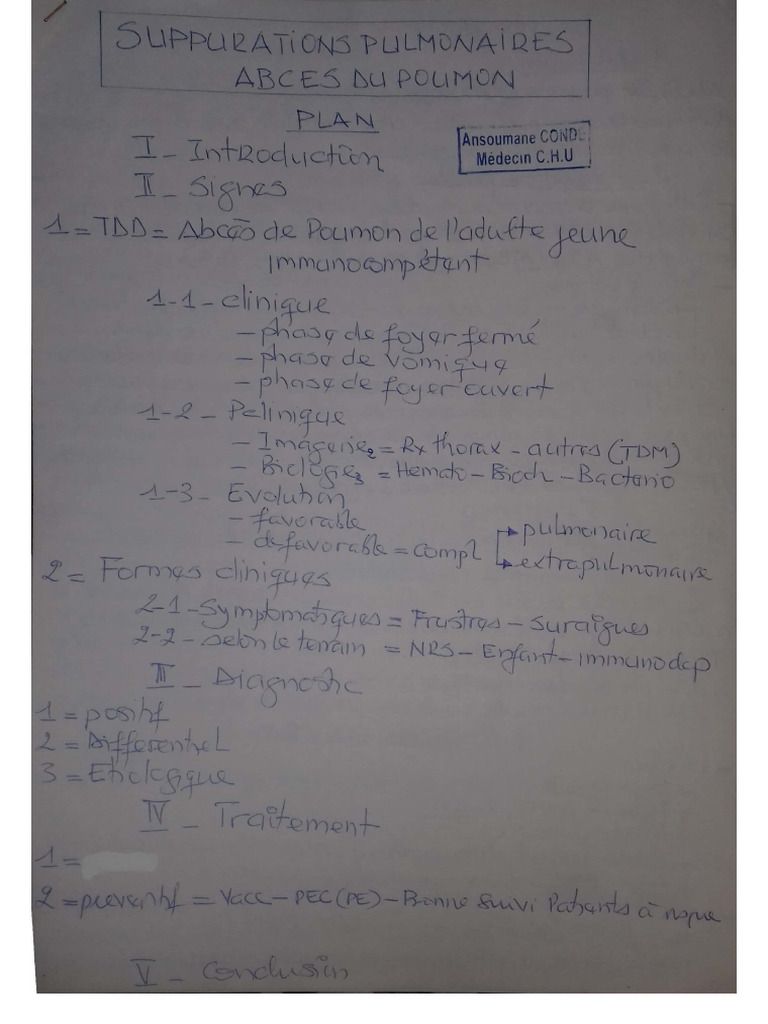 SUPPURATIONS PULMONAIRES
ABCES DU POUMON
PLAN
Ansoumane CONDE
Médecin C.H.U
I - Introduction
II - Signes
1 = TDD = Abcès de Poumon de l'adulte jeune
immunocompétent
1-1 - clinique
- phase de foyer fermé
- phase de vomique
- phase de foyer ouvert
1-2 - Pclinique
- Imagerie2 = Rx thorax - autres (TDM)
- Biologie3 = Hemato - Bioch - Bacterio
1-3 - Evolution
- favorable
- defavorable = compl → pulmonaire
→ extrapulmonaire
2 = Formes cliniques
2-1 - Symptomatiques = Frustres - Suraïgues
2-2 - selon le terrain = NRS - Enfant - immunodep
III - Diagnostic
1 = positif
2 = Différentiel
3 = Etiologique
IV - Traitement
1 =
2 = preventif = Vacc - PEC (PE) - Bonne Suivi Patients à risque
V - Conclusion